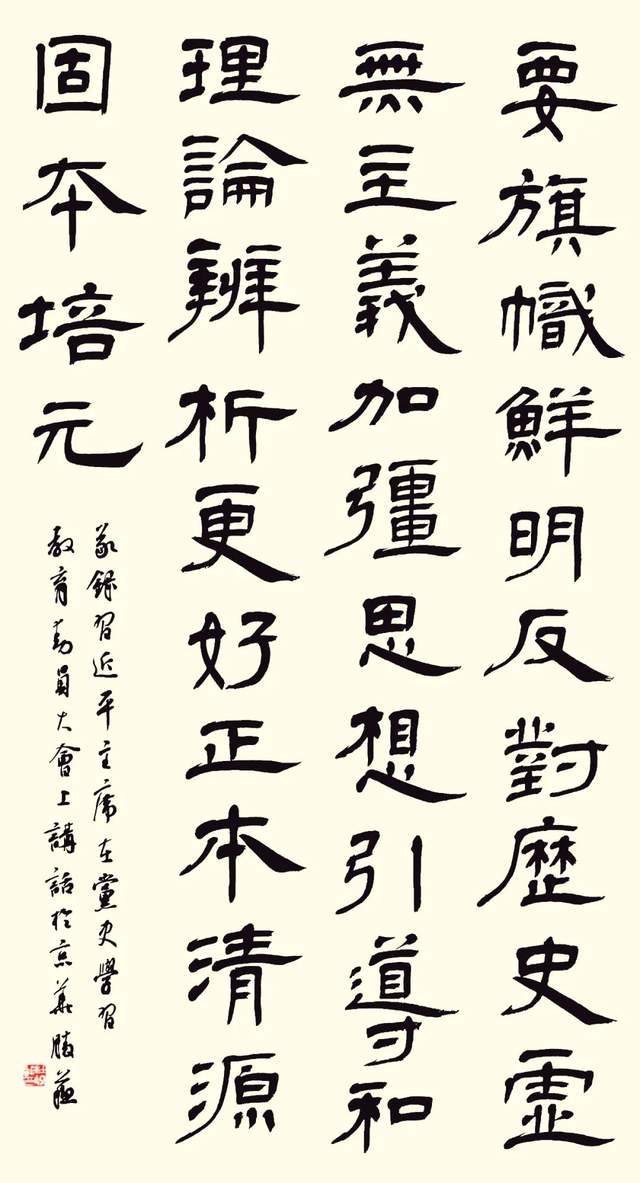 要旗幟鮮明反對歷史虛
無主義加彊思想引導和
理論辨析更好正本清源
固本培元
錄習近平主席在黨史學習
教育動員大會上講話於京華勝